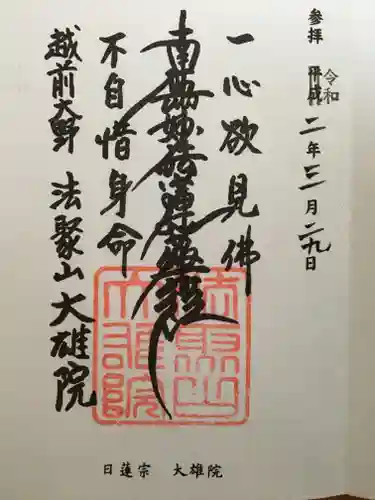 参拝 平成 令和 二年三月二九日
一心欲見佛
南無妙法蓮華経
不自惜身命
越前大野 法聚山 大雄院
法聚山
大雄院
日蓮宗 大雄院